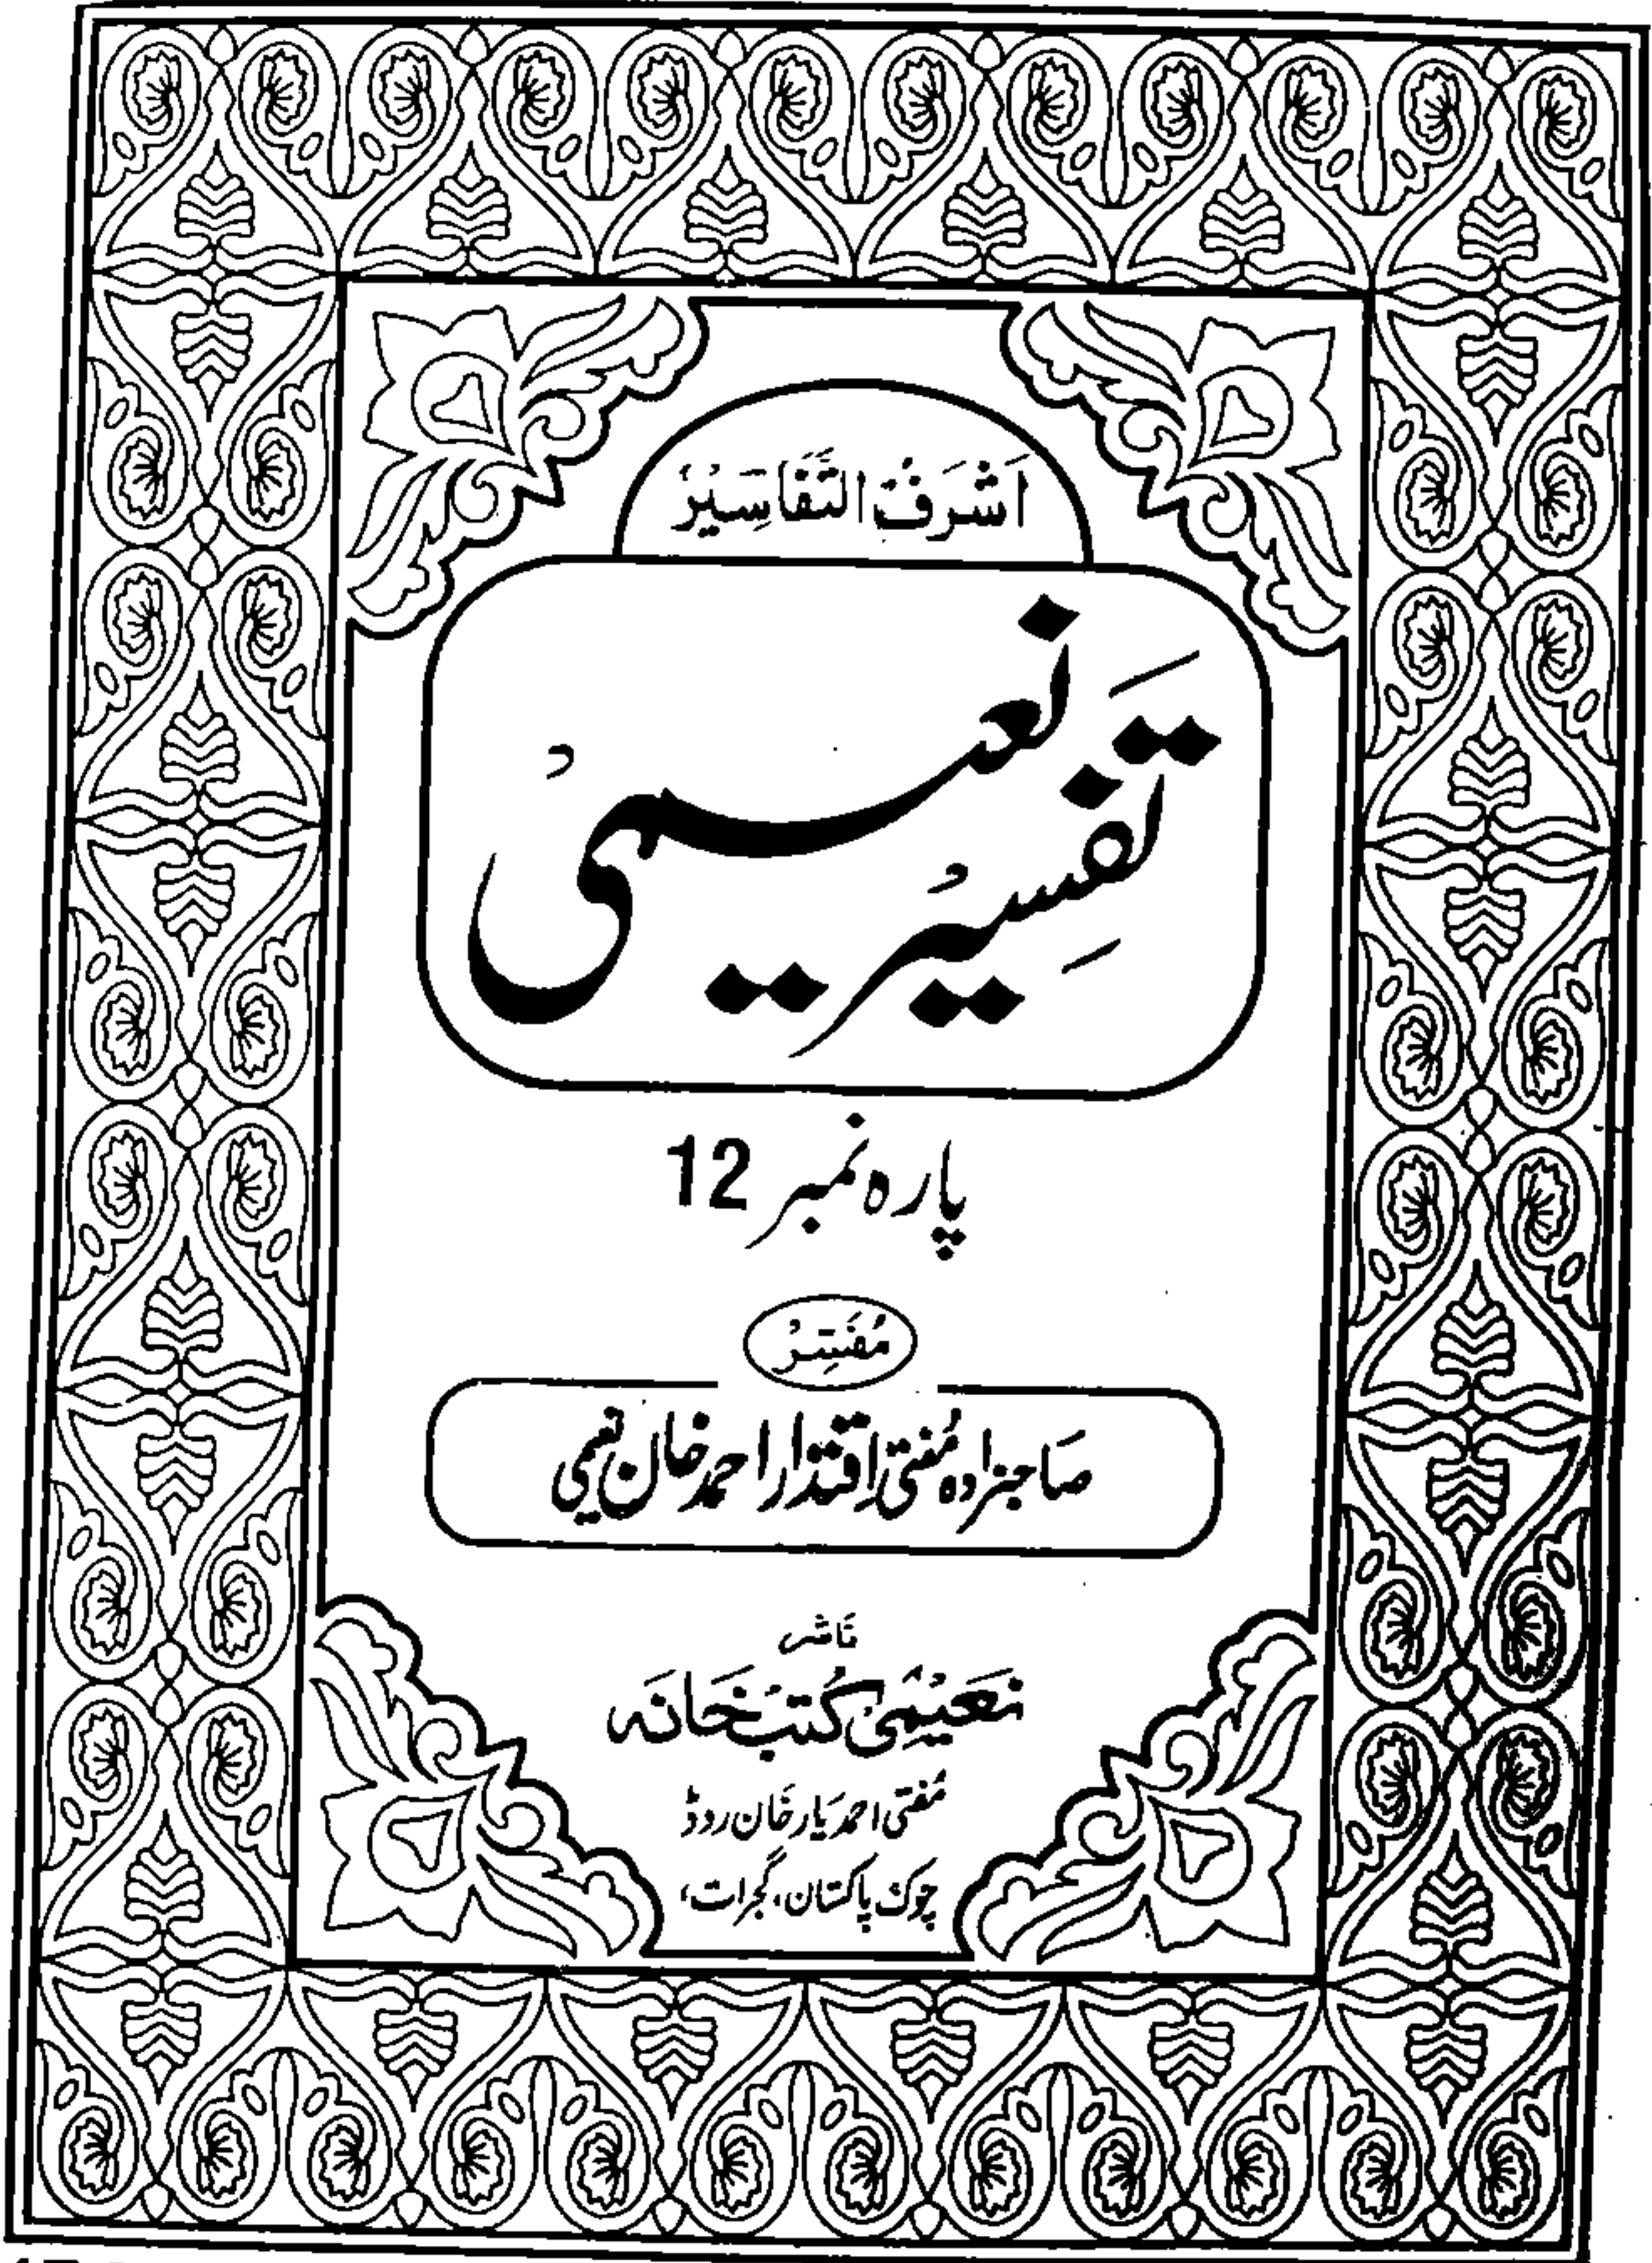 اَشْرَفُ التَّفَاسِیْرْ
تَفسِیْر نعیمیْ
پارہ نمبر 12
مُفَسِّرْ
صاحبزادہ مُفتی اِقتدار احمد خان نعیمی
ناشر
نَعِیْمِیْ کُتب خَانَہ
مُفتی احمد یار خَان روڈ
چوک پاکستان، گجرات،